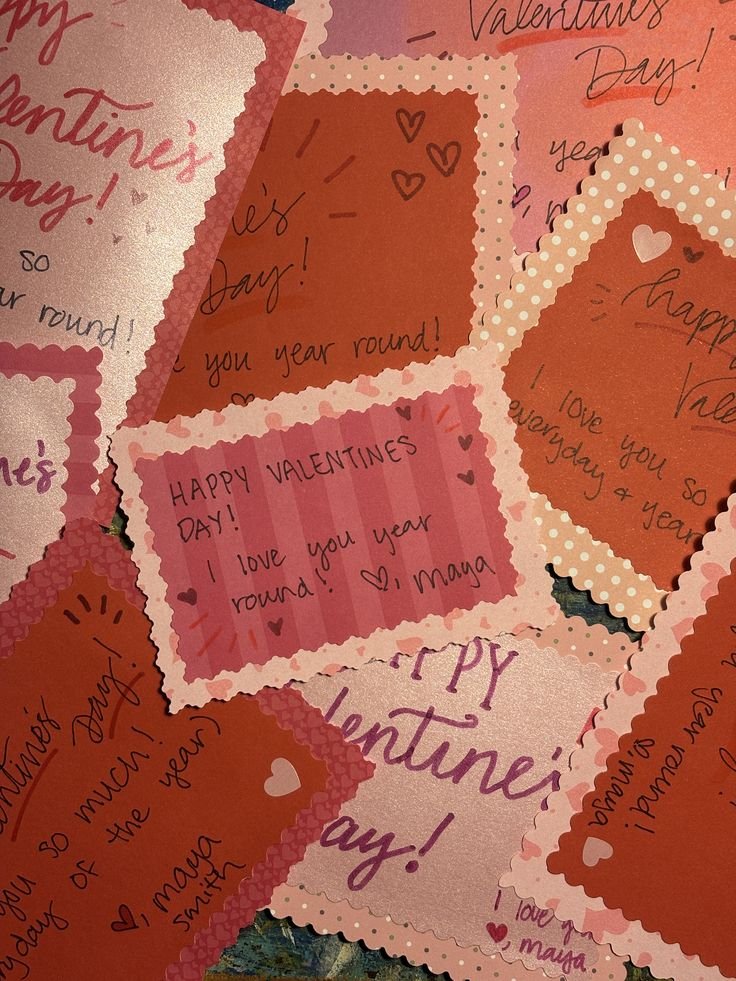 ppy
lentine's
Day!
so
ar round!
e's
Day!
e you year round!
Valentines
Day!
yea
happy
Vale
I love you so
everyday & year
ne's
HAPPY VALENTINES
DAY!
I love you year
round! ♡, maya
ntine's Day!
you so much!
yday of the year)
♥, maya
Smith
PPY
lentine's
ay!
I love y
♥, maya
year round!
so, maya